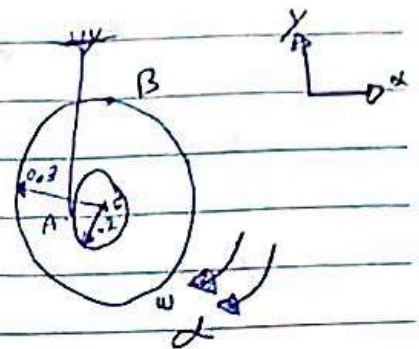 y
x
B
0.3
A
C
.2
ω
α